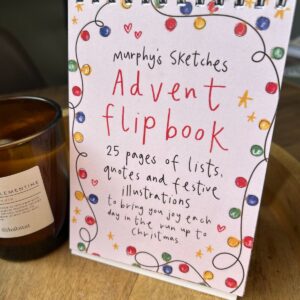 murphy's sketches
Advent
flipbook
25 pages of lists,
quotes and festive
illustrations
to bring you joy each
day in the run up to
Christmas
LEMENTINE
@habitat